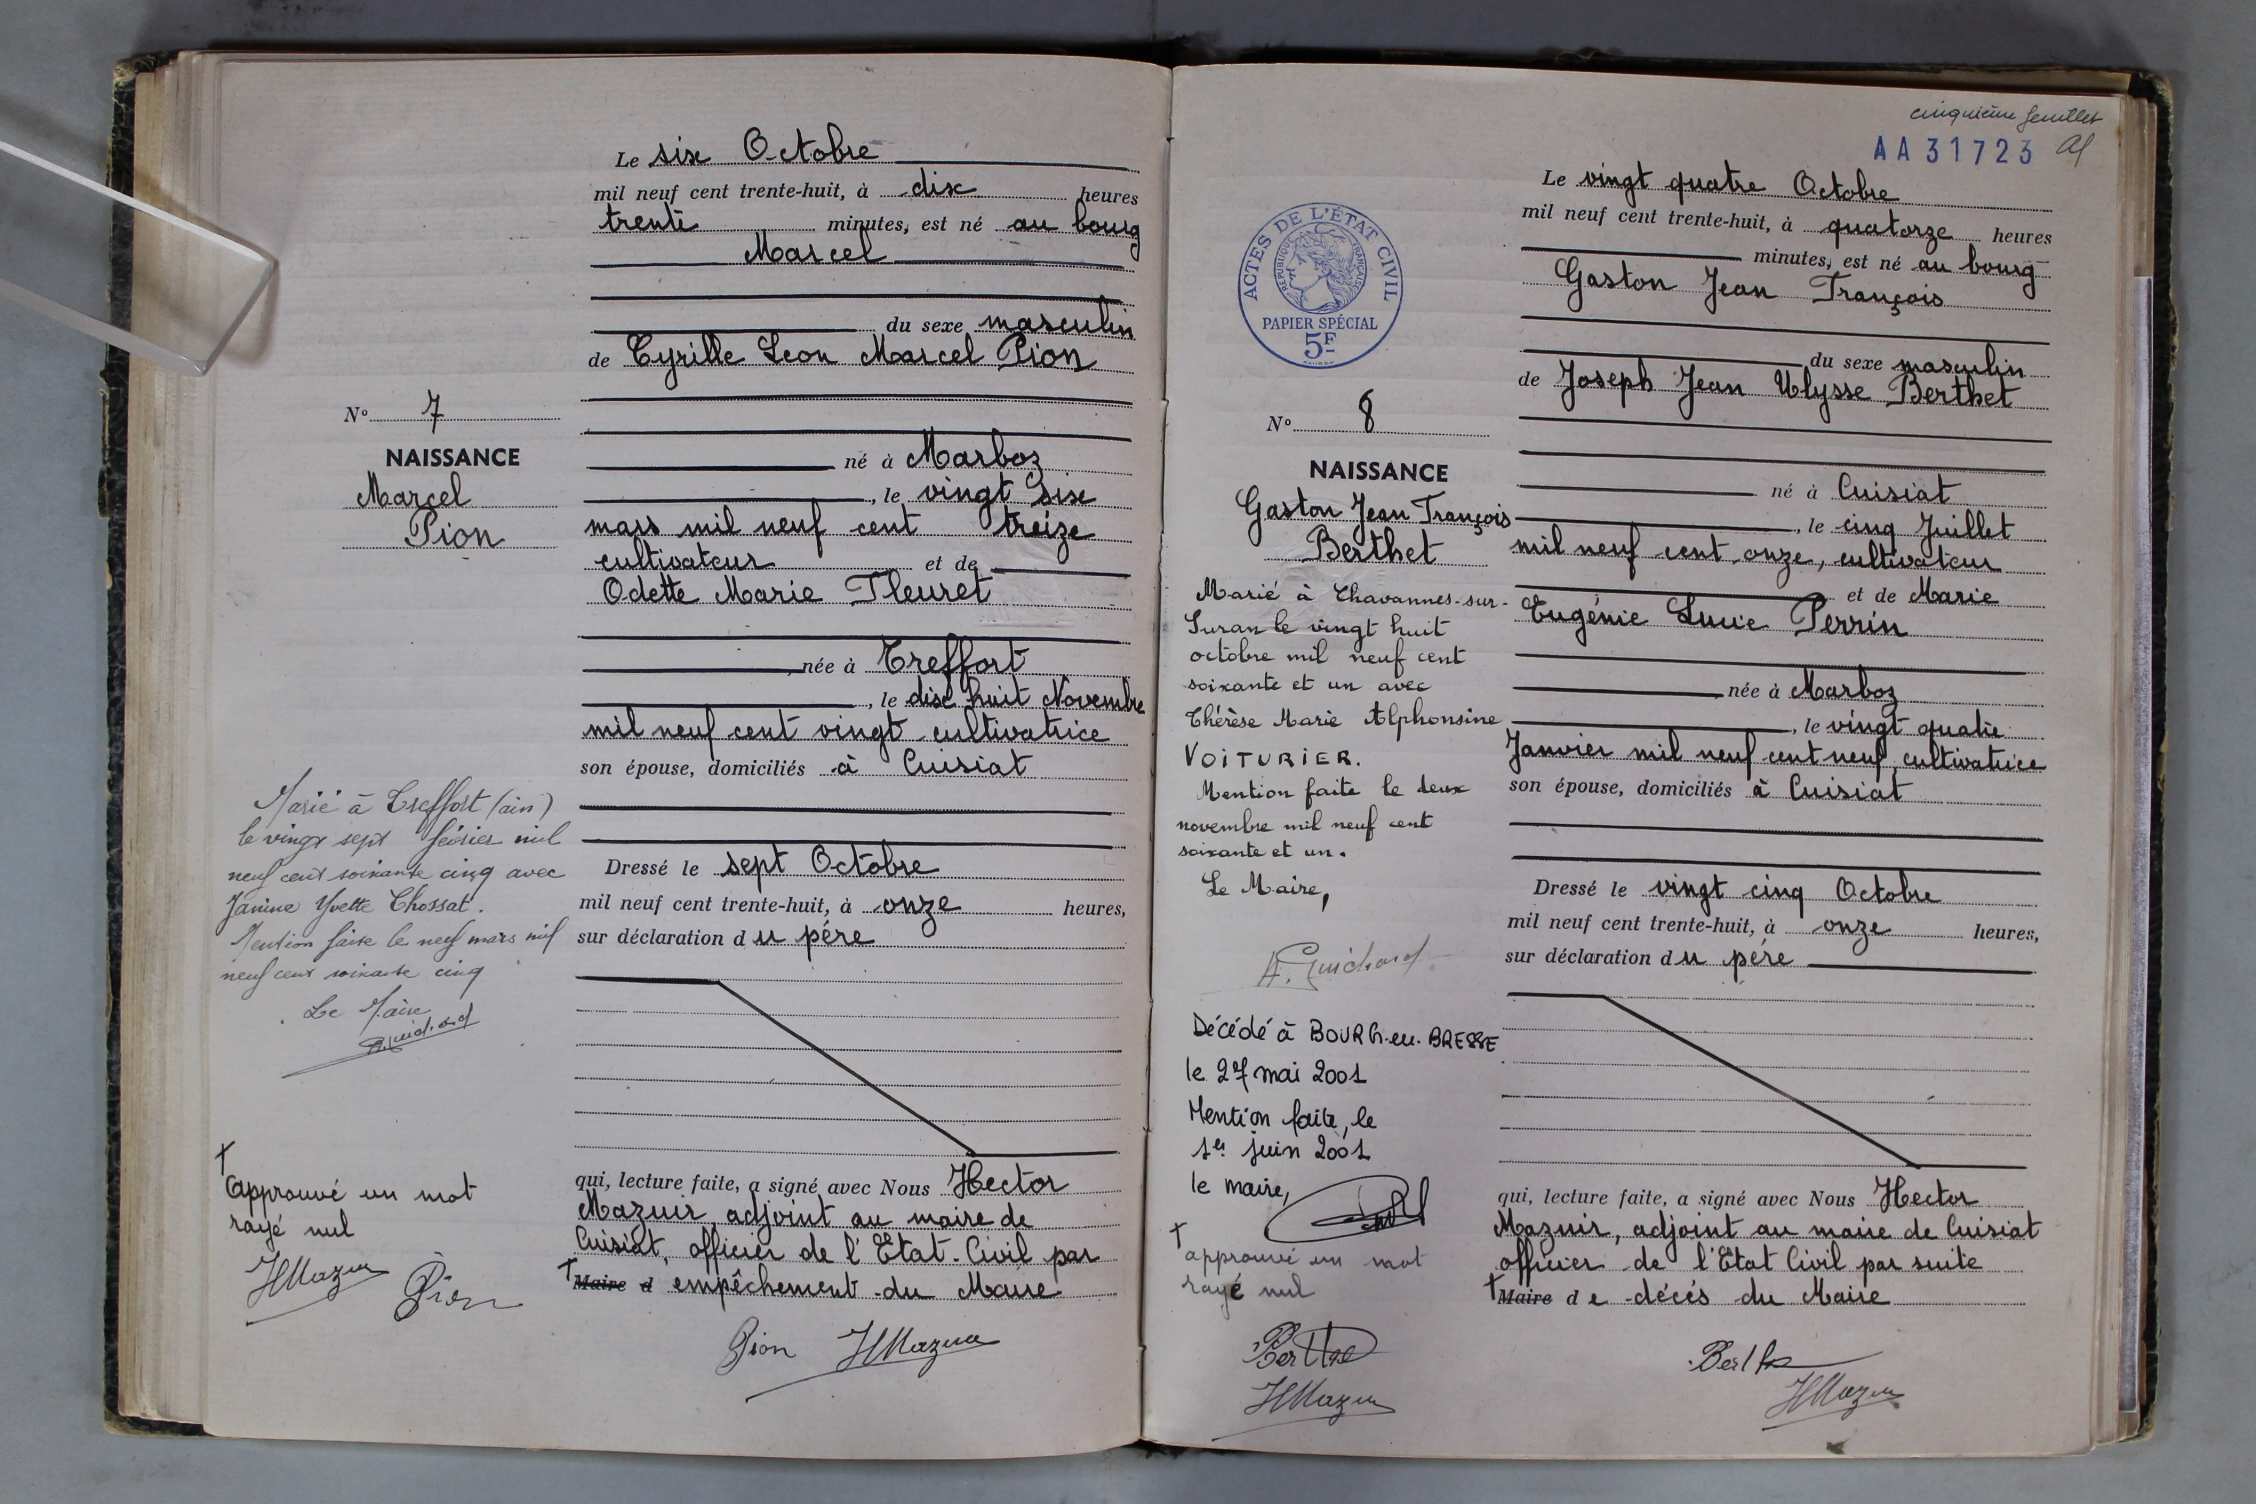 Le six Octobre
mil neuf cent trente-huit, à dix heures
trente minutes, est né au bourg
Marcel
du sexe masculin
de Cyrille Leon Marcel Pion
né à Marboz
, le vingt six
mars mil neuf cent treize
cultivateur et de
Odette Marie Fleuret
née à Treffort
, le dix huit Novembre
mil neuf cent vingt cultivatrice
son épouse, domiciliés à Cuisiat
Dressé le sept Octobre
mil neuf cent trente-huit, à onze heures,
sur déclaration du père
qui, lecture faite, a signé avec Nous Hector
Mazuir, adjoint au maire de
Cuisiat, officier de l'Etat-Civil par
† Maire d empêchement du Maire
Pion HMazuir
N° 7
NAISSANCE
Marcel
Pion
Marié à Treffort (ain)
le vingt sept février mil
neuf cent soixante cinq avec
Janine Yvette Chossat.
Mention faite le neuf mars mil
neuf cent soixante cinq
Le Maire
A. Guichard
†
approuvé un mot
rayé nul
HMazuir Pion
cinquième feuillet
AA31723
Le vingt quatre Octobre
mil neuf cent trente-huit, à quatorze heures
minutes, est né au bourg
Gaston Jean François
du sexe masculin
de Joseph Jean Ulysse Berthet
né à Cuisiat
, le cinq Juillet
mil neuf cent onze, cultivateur
et de Marie
Eugénie Lucie Perrin
née à Marboz
, le vingt quatre
Janvier mil neuf cent neuf, cultivatrice
son épouse, domiciliés à Cuisiat
Dressé le vingt cinq Octobre
mil neuf cent trente-huit, à onze heures,
sur déclaration du père
qui, lecture faite, a signé avec Nous Hector
Mazuir, adjoint au maire de Cuisiat
officier de l'Etat Civil par suite
† Maire de décès du Maire
Berthet
HMazuir
ACTES DE L'ÉTAT CIVIL
RÉPUBLIQUE FRANÇAISE
PAPIER SPÉCIAL
5F
N° 8
NAISSANCE
Gaston Jean François
Berthet
Marié à Chavannes-sur-
Suran le vingt huit
octobre mil neuf cent
soixante et un avec
Thérèse Marie Alphonsine
VOITURIER.
Mention faite le deux
novembre mil neuf cent
soixante et un.
Le Maire,
A. Guichard
Décédé à BOURG-en-BRESSE
le 27 mai 2001
Mention faite, le
1er juin 2001
le maire,
†
approuvé un mot
rayé nul
Berthet
HMazuir